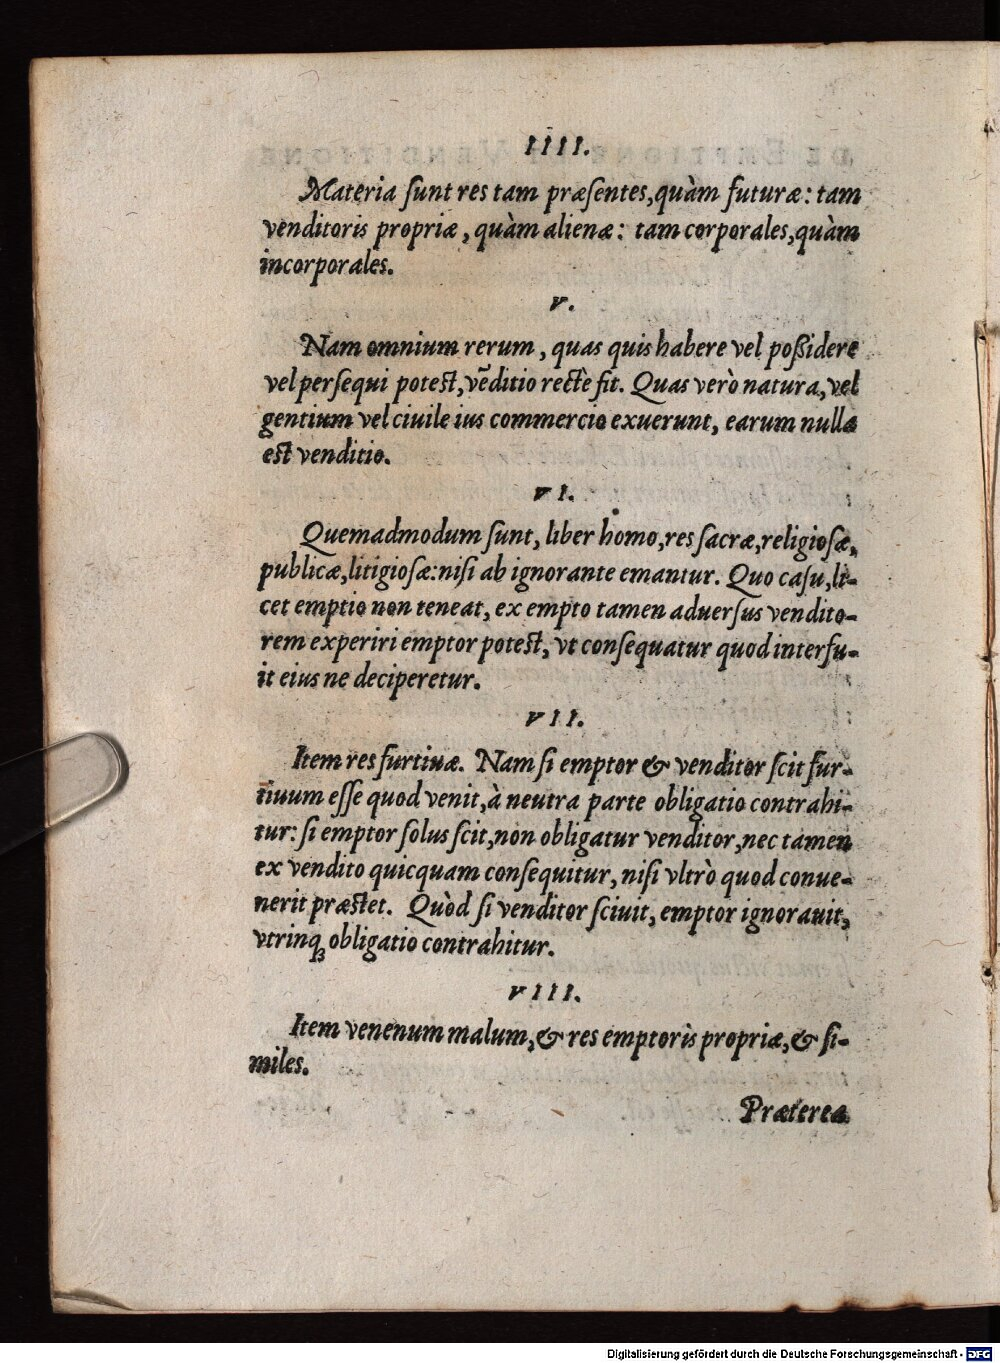 IIII.
Materia sunt res tam præsentes, quàm futuræ: tam
venditoris propriæ, quàm alienæ: tam corporales, quàm
incorporales.
V.
Nam omnium rerum, quas quis habere vel poßidere
vel persequi potest, vēditio rectè fit. Quas verò natura, vel
gentium vel ciuile ius commercio exuerunt, earum nulla
est venditio.
VI.
Quemadmodum sunt, liber homo, res sacræ, religiosæ,
publicæ, litigiosæ: nisi ab ignorante emantur. Quo casu, li-
cet emptio non teneat, ex empto tamen aduersus vendito-
rem experiri emptor potest, vt consequatur quod interfu-
it eius ne deciperetur.
VII.
Item res furtiuæ. Nam si emptor & venditor scit fur-
tiuum esse quod venit, à neutra parte obligatio contrahi-
tur: si emptor solus scit, non obligatur venditor, nec tamen
ex vendito quicquam consequitur, nisi vltrò quod conue-
nerit præstet. Quòd si venditor sciuit, emptor ignorauit,
vtrinq; obligatio contrahitur.
VIII.
Item venenum malum, & res emptoris propriæ, & si-
miles.
Præterea
Digitalisierung gefördert durch die Deutsche Forschungsgemeinschaft - DFG